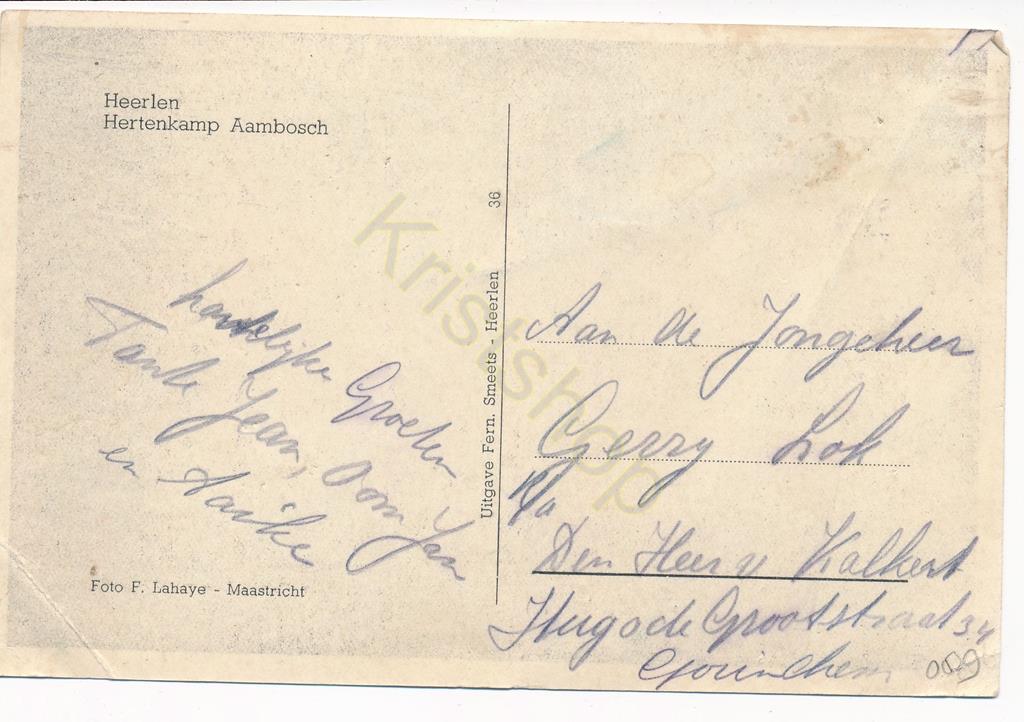 Heerlen
Hertenkamp Aambosch
hartelijke Groeten
Tante Jean, Oom Jan
en
Foto F. Lahaye - Maastricht
Uitgave Fern. Smeets - Heerlen 36
Kristshop
Aan de Jongeheer
Gerry Lok
P/a
Den Heer v Kalkert
Hugo de Grootstraat 34
Gorinchem
0029